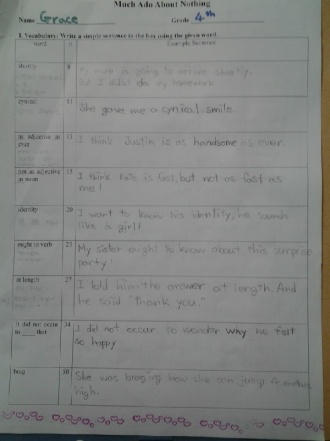 Much Ado About Nothing
Name Grace Grade 4th
I. Vocabulary: Write a simple sentence in the box using the given word.
word n Example Sentence
shortly 8 My mom is going to arrive shortly.
But I didn't do my homework
cynical 11 She gave me a cynical smile.
as adjective as ever 13 I think Justin is as handsome as ever.
not as adjective as noun 15 I think Kate is fast, but not as fast as
me!
identity 20 I want to know his identity, he sounds
like a girl!
ought to verb 25 My sister ought to know about this surprise
party!
at length 27 I told him the answer at length. And
he said "thank you."
it did not occur to ___ that 34 I did not occur to wonder why he felt
so happy
brag She was braging how she can jump 4 meters
high.